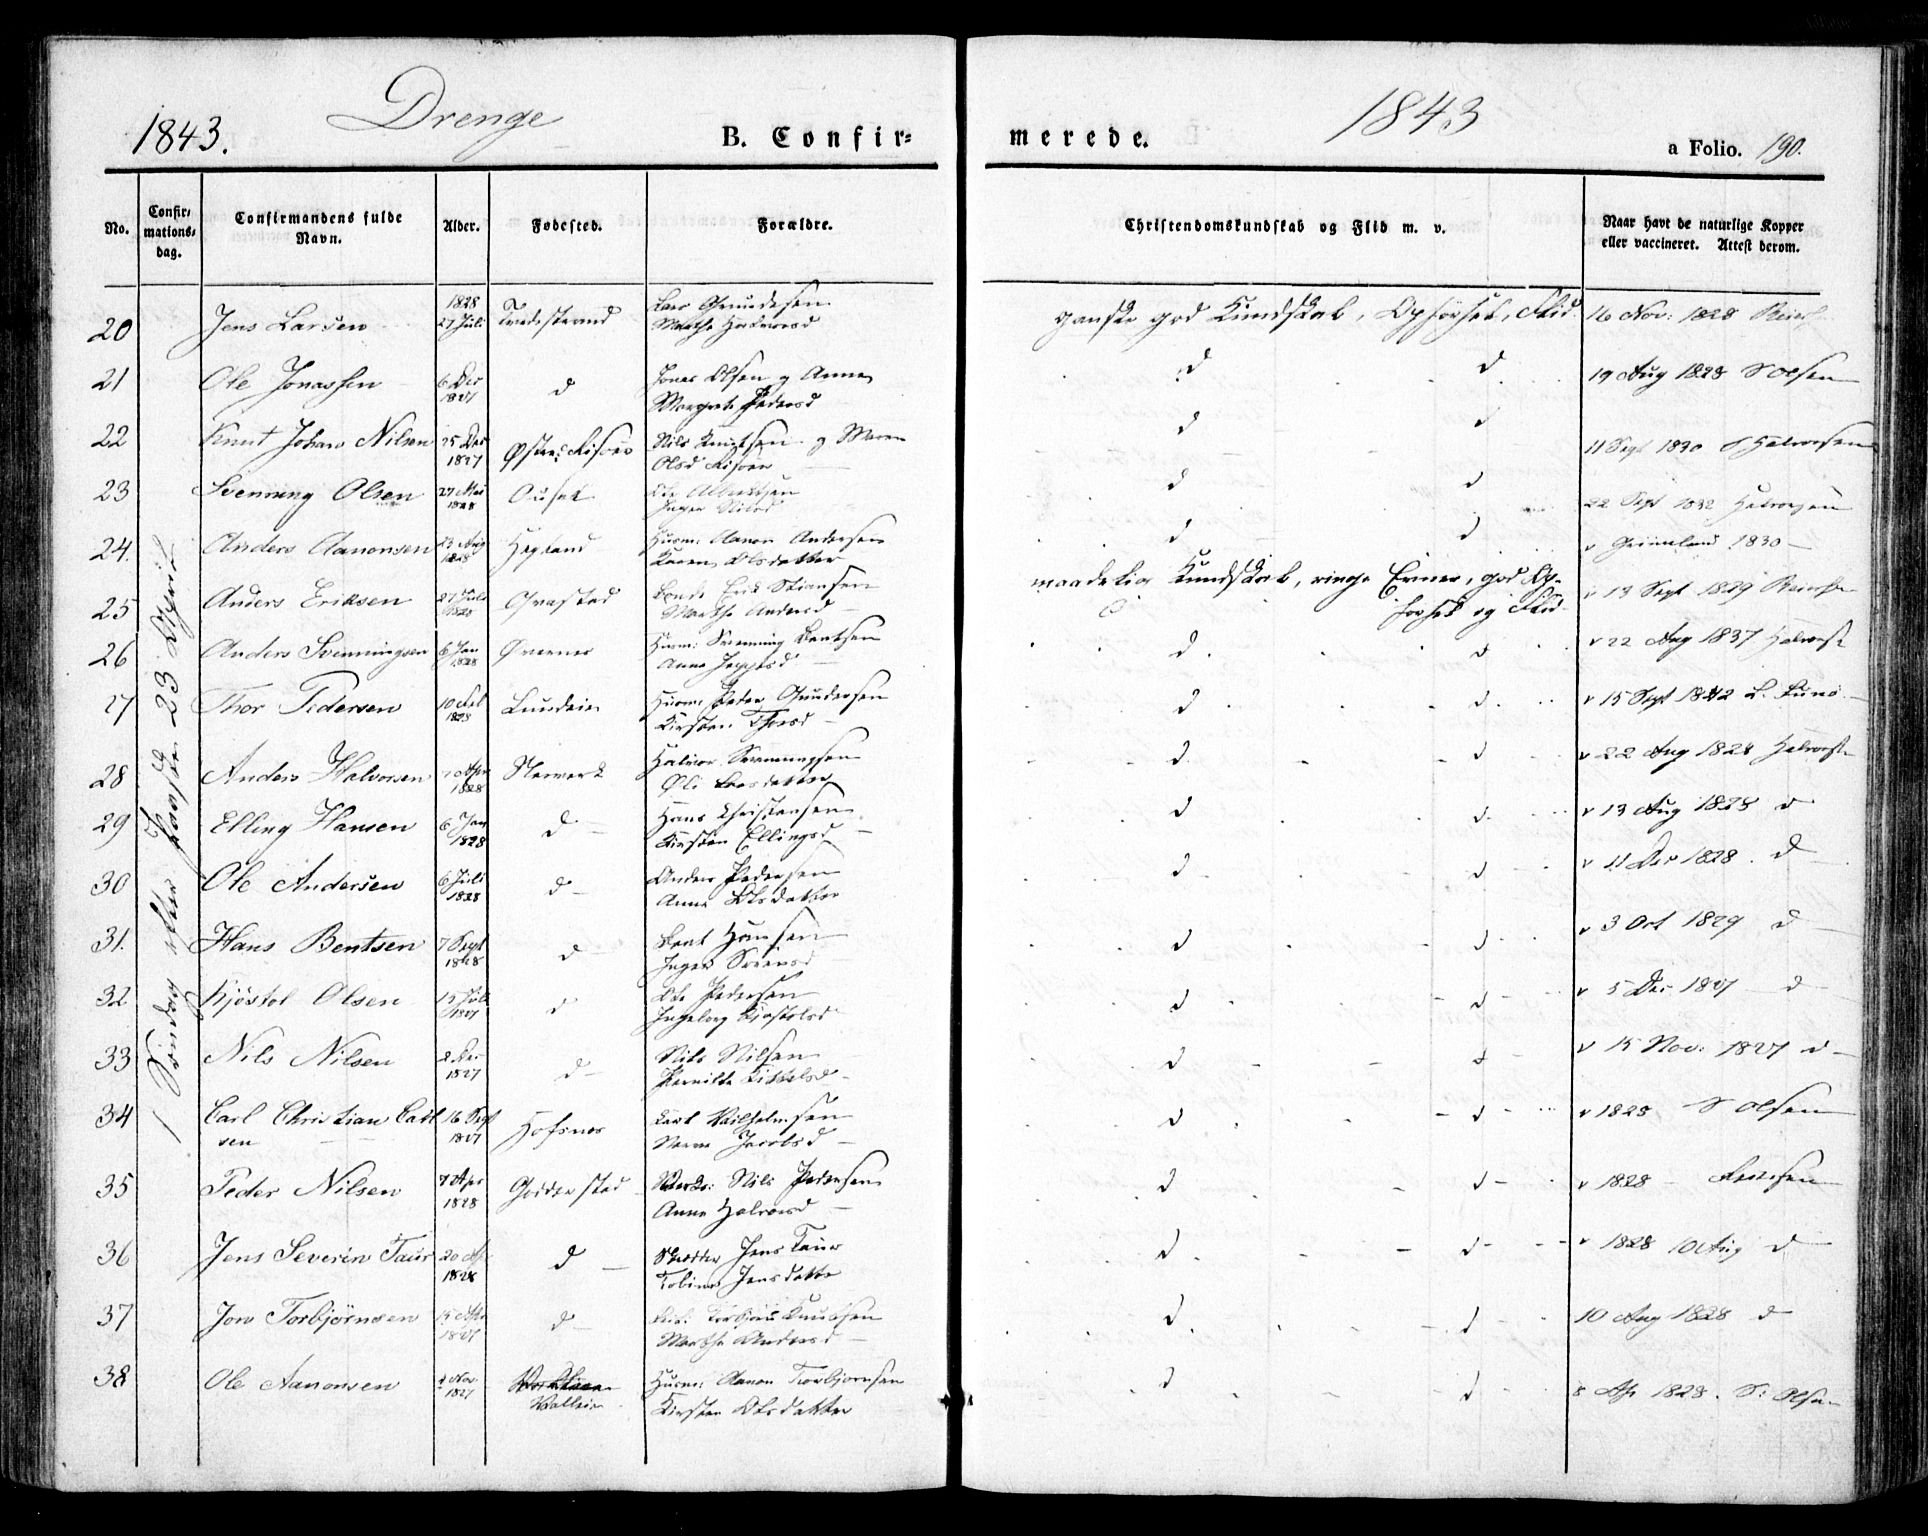 1843. Drenge B. Confir-
merede. 1843 a Folio. 190.
No. Confir-mations-dag. Confirmandens fulde Navn. Alder. Fødested. Forældre. Christendomskundskab og Flid m. v. Naar havt de naturlige Kopper eller vaccineret. Attest derom.
1 Søndag efter Paaske 23 April
20 Jens Larsen 1828 27 Juli Tvedestrand Lars Gundersen Marthe Halvorsd ganske god Kundskab, Opførsel, Flid 16 Nov: 1828
21 Ole Jonassen 6 Dec 1827 d Jonas Olsen og Anne Margrete Pedersd d d 19 Aug 1828 S Olsen
22 Knut Johan Nilsen 25 Dec 1827 Øster Risoer Nils Knutsen og Maren Olsd Risoer d d 11 Sept 1830 Halvorsen
23 Svenning Olsen 27 Mai 1828 Ouset Ole Albertsen Inger Nilsd d d 22 Sept 1832 Halvorsen
24. Anders Aanonsen 23 Aug 1828 Hegland Husm: Aanon Andersen Karen Olsdatter d d v Grimeland 1830
25 Anders Eriksen 27 Juli 1828 Grastad Bonde Erik Stiansen Marthe Andersd maadelig Kundskab, ringe Evner, god Op-
førsel og Flid v 13 Sept 1829
26 Anders Svenningsen 6 Jan 1828 Øvernes Husm: Svenning Bentsen Anne Jeppesd d d v 22 Aug 1837 Halvors
27 Thor Pedersen 10 Feb 1828 Lundeie Husm: Peder Gundersen Kirsten Thorsd d d v 15 Sept 1842
28 Anders Halvorsen 7 Apr 1828 Næsverk Halvor Svenningsen Øli Larsdatter d d v 22 Aug 1828 Halvors
29 Elling Hansen 6 Jan 1828 d Hans Christensen Kirsten Ellingsd d d v 13 Aug 1828 d
30 Ole Andersen 6 Juli 1828 d Anders Pedersen Anne Olsdatter d d v 11 Dec 1828. d
31. Hans Bentsen 7 Sept 1828 d Bent Hansen Inger Svensd d d v 3 Oct 1829 d
32 Kjøstol Olsen 15 Juli 1827 d Ole Pedersen Ingeborg Kjøstolsd d d v 5 Dec 1827 d
33 Nils Nilsen 2 Dec 1827 d Nils Nilsen Pernille Kittelsd d d v 15 Nov: 1827 d
34 Carl Christian Carl
sen 16 Sept 1827 Hofsnes Carl Vilhelmsen Maren Jacobsd d d v 1828 S Olsen
35 Peder Nilsen 7 Apr 1828 Godderstad Nils Pedersen Anne Halvorsd d d v 1828
36 Jens Severin Faur 20 Apr 1828 d Jens Faur Tobine Jensdatter d d v 1828 10 Aug d
37 Jon Torbjørnsen 15 Apr 1827 d Torbjørn Knutsen Marthe Andersd d d 10 Aug 1828 d
38 Ole Aanonsen 4 Nov 1827 Valleie Husm: Aanon Torbjørnsen Kirsten Olsdatter d d 8 Apr 1828. S: Olsen